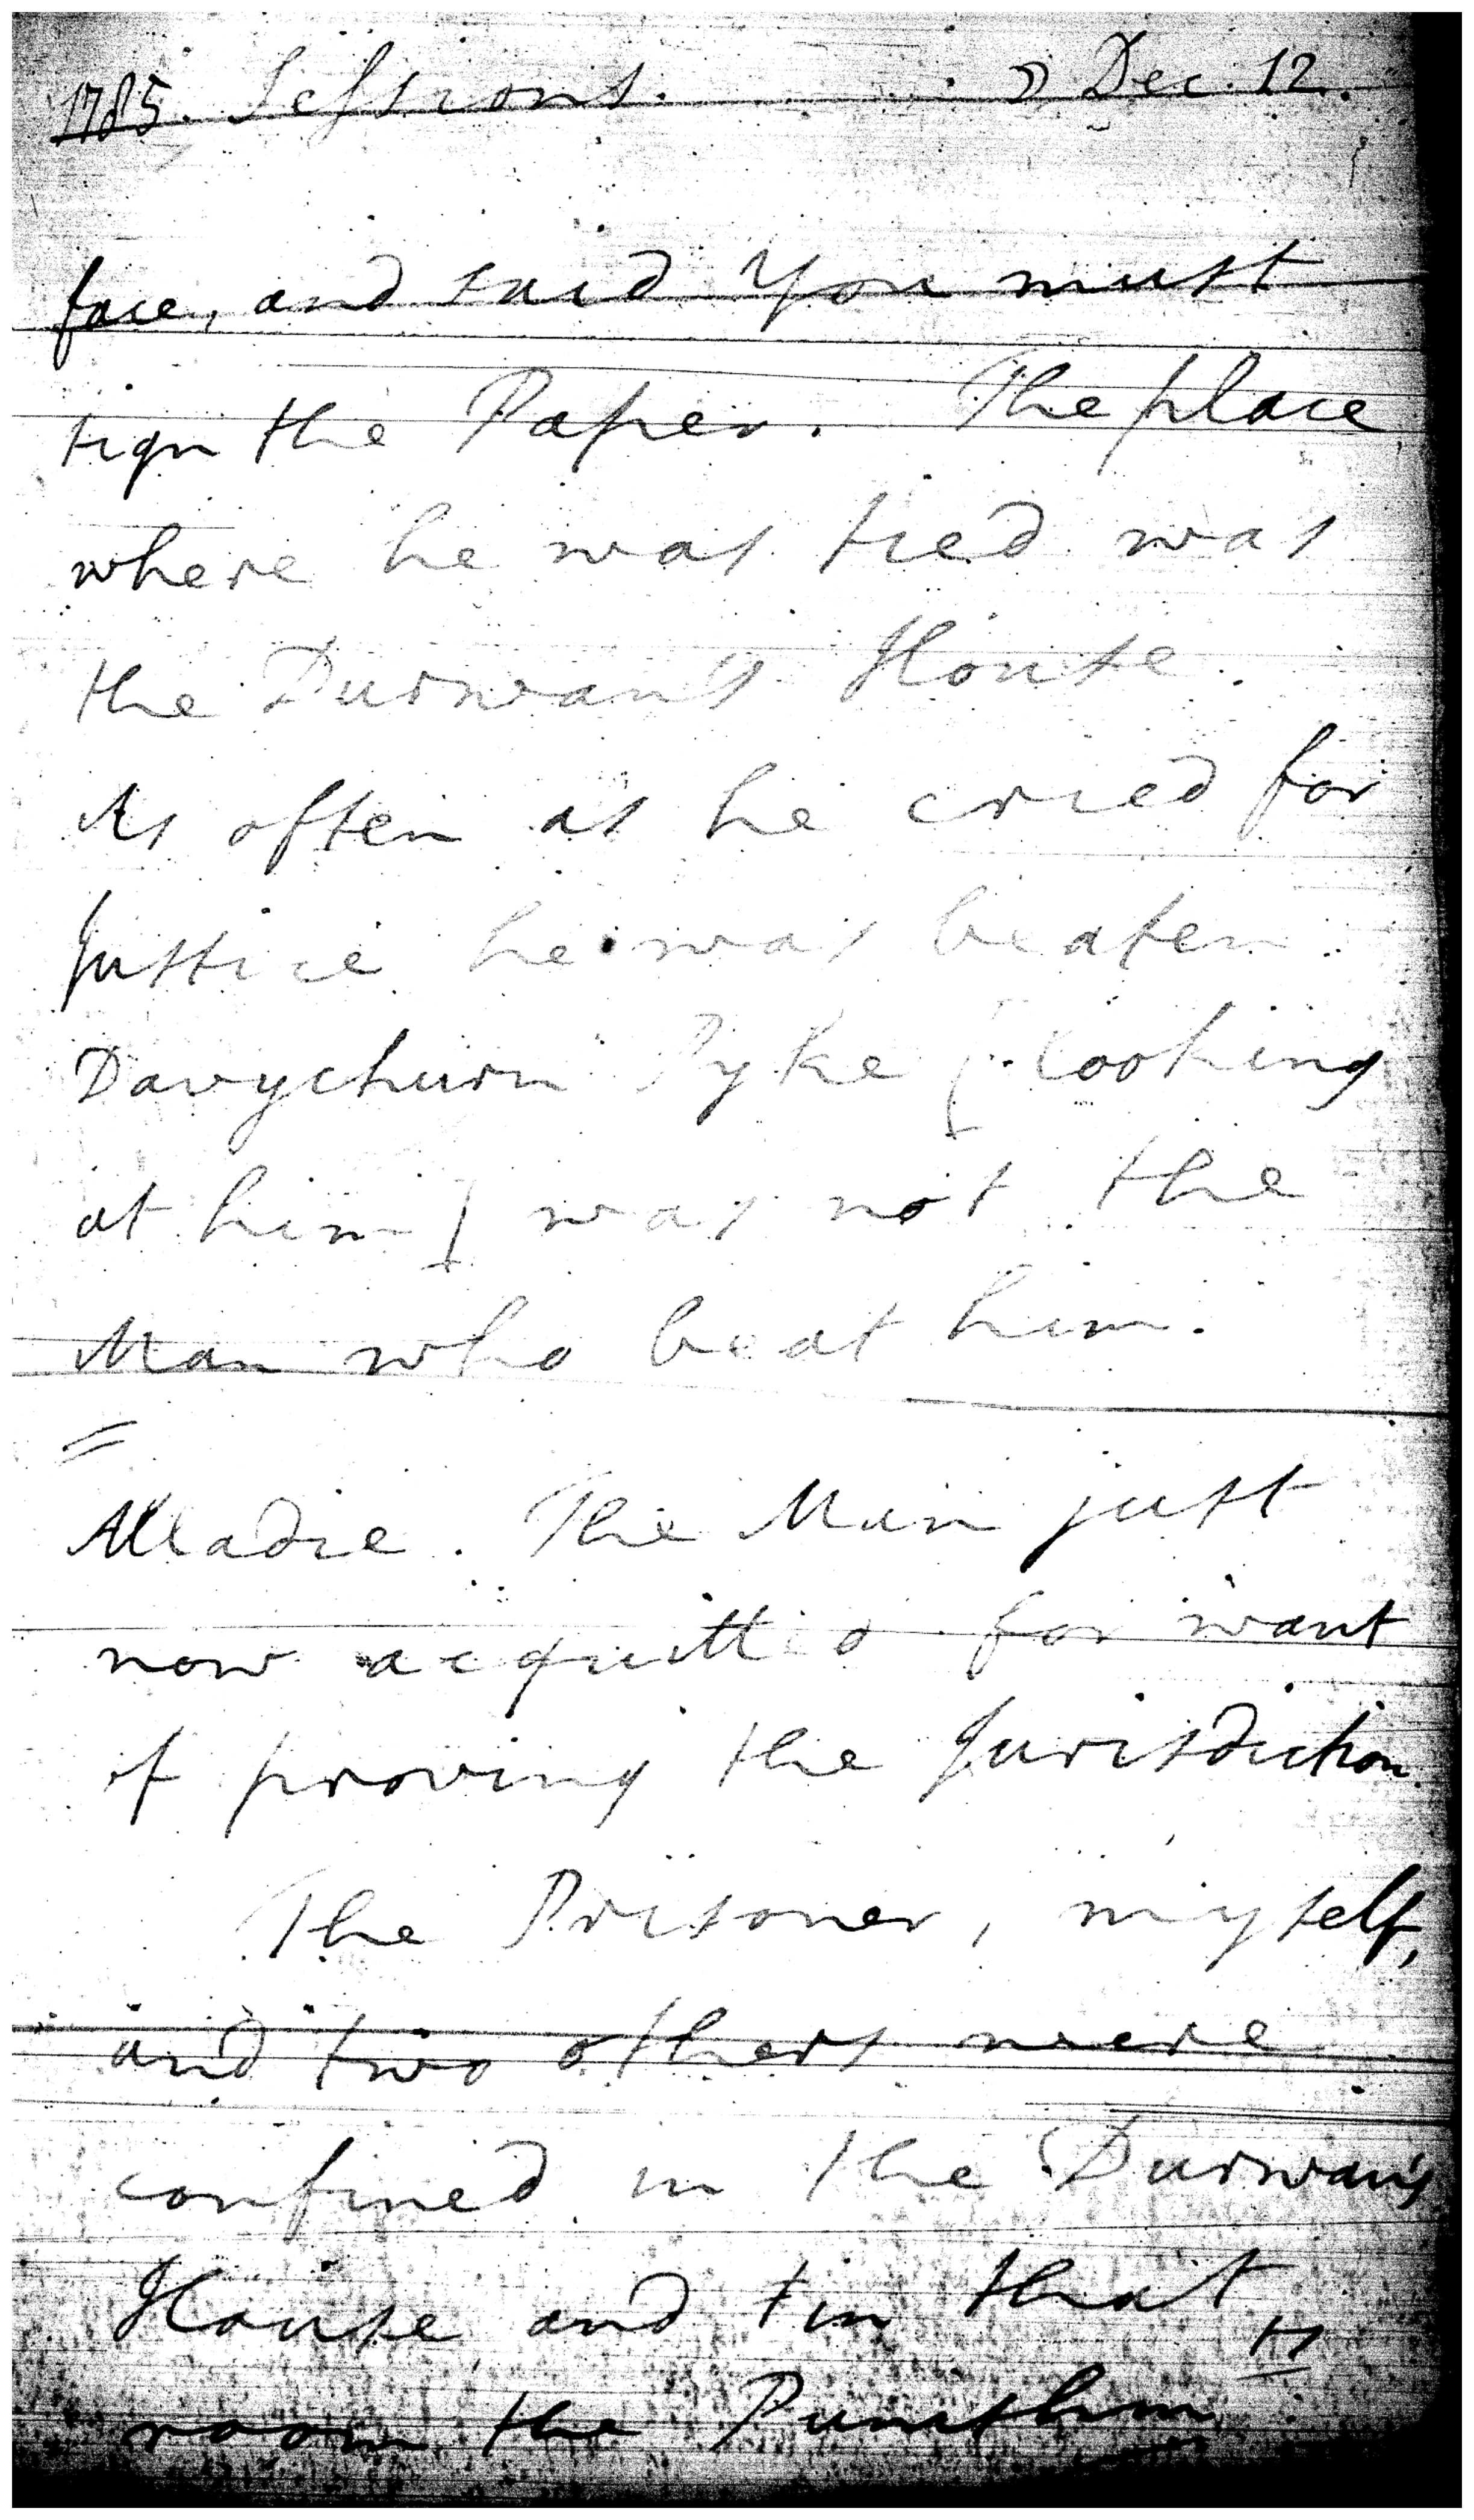 1785. Sessions. ☽ Dec. 12.
face, and said You must
sign the Paper. The place
where he was tied was
the Durwan's House.
As often as he cried for
Justice he was beaten.
Davychurn Pyke [looking
at him] was not the
Man who beat him.
=
Alladie. The Man just
now acquitted for want
of proving the Jurisdiction.
The Prisoner, myself,
and two others were
confined in the Durwan's
House and in that
room the Punishmt